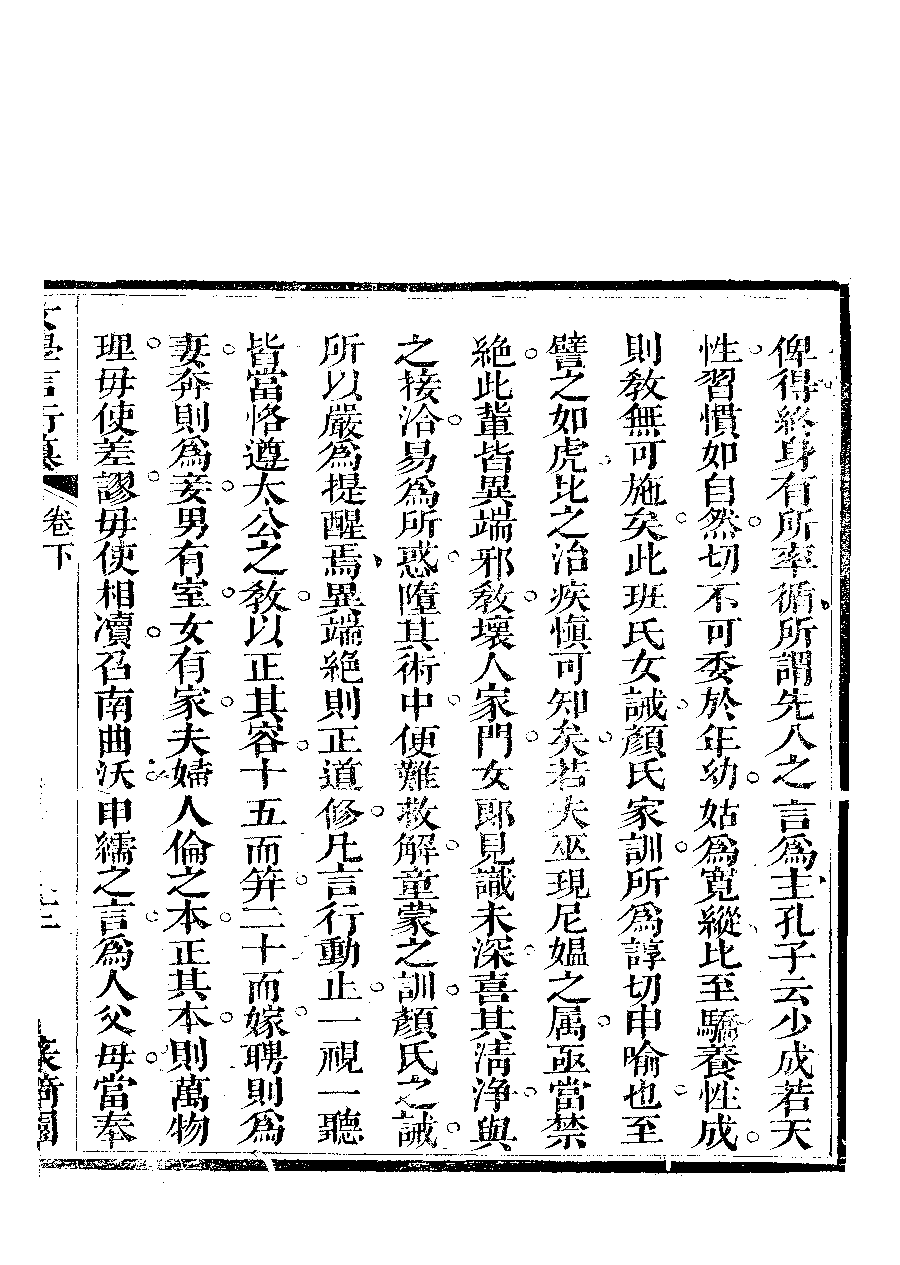 俾得終身有所率循所謂先入之言爲主孔子云少成若天
性習慣如自然切不可委於年幼姑爲寬縱比至驕養性成
則敎無可施矣此班氏女誡顏氏家訓所爲諄切申喻也至
譬之如虎比之治疾愼可知矣若夫巫現尼媼之属亟當禁
絶此軰皆異端邪敎壞人家門女郎見識未深喜其淸净與
之接洽易爲所惑墮其術中便難救解童蒙之訓顏氏之誡
所以嚴爲提醒焉異端絶則正道修凡言行動止一視一聽
皆當恪遵太公之敎以正其容十五而笄二十而嫁聘則爲
妻奔則爲妾男有室女有家夫婦人倫之本正其本則萬物
理毋使差謬毋使相凟召南曲沃申繻之言爲人父毋當奉
女學言行纂
卷下